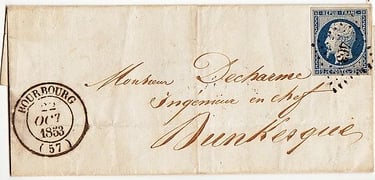 REPUB. FRANC.
25 C. POSTE 25 C.
Monsieur Decharme
Ingénieur en chef
Dunkerque
BOURBOURG
22
OCT
1853
(57)